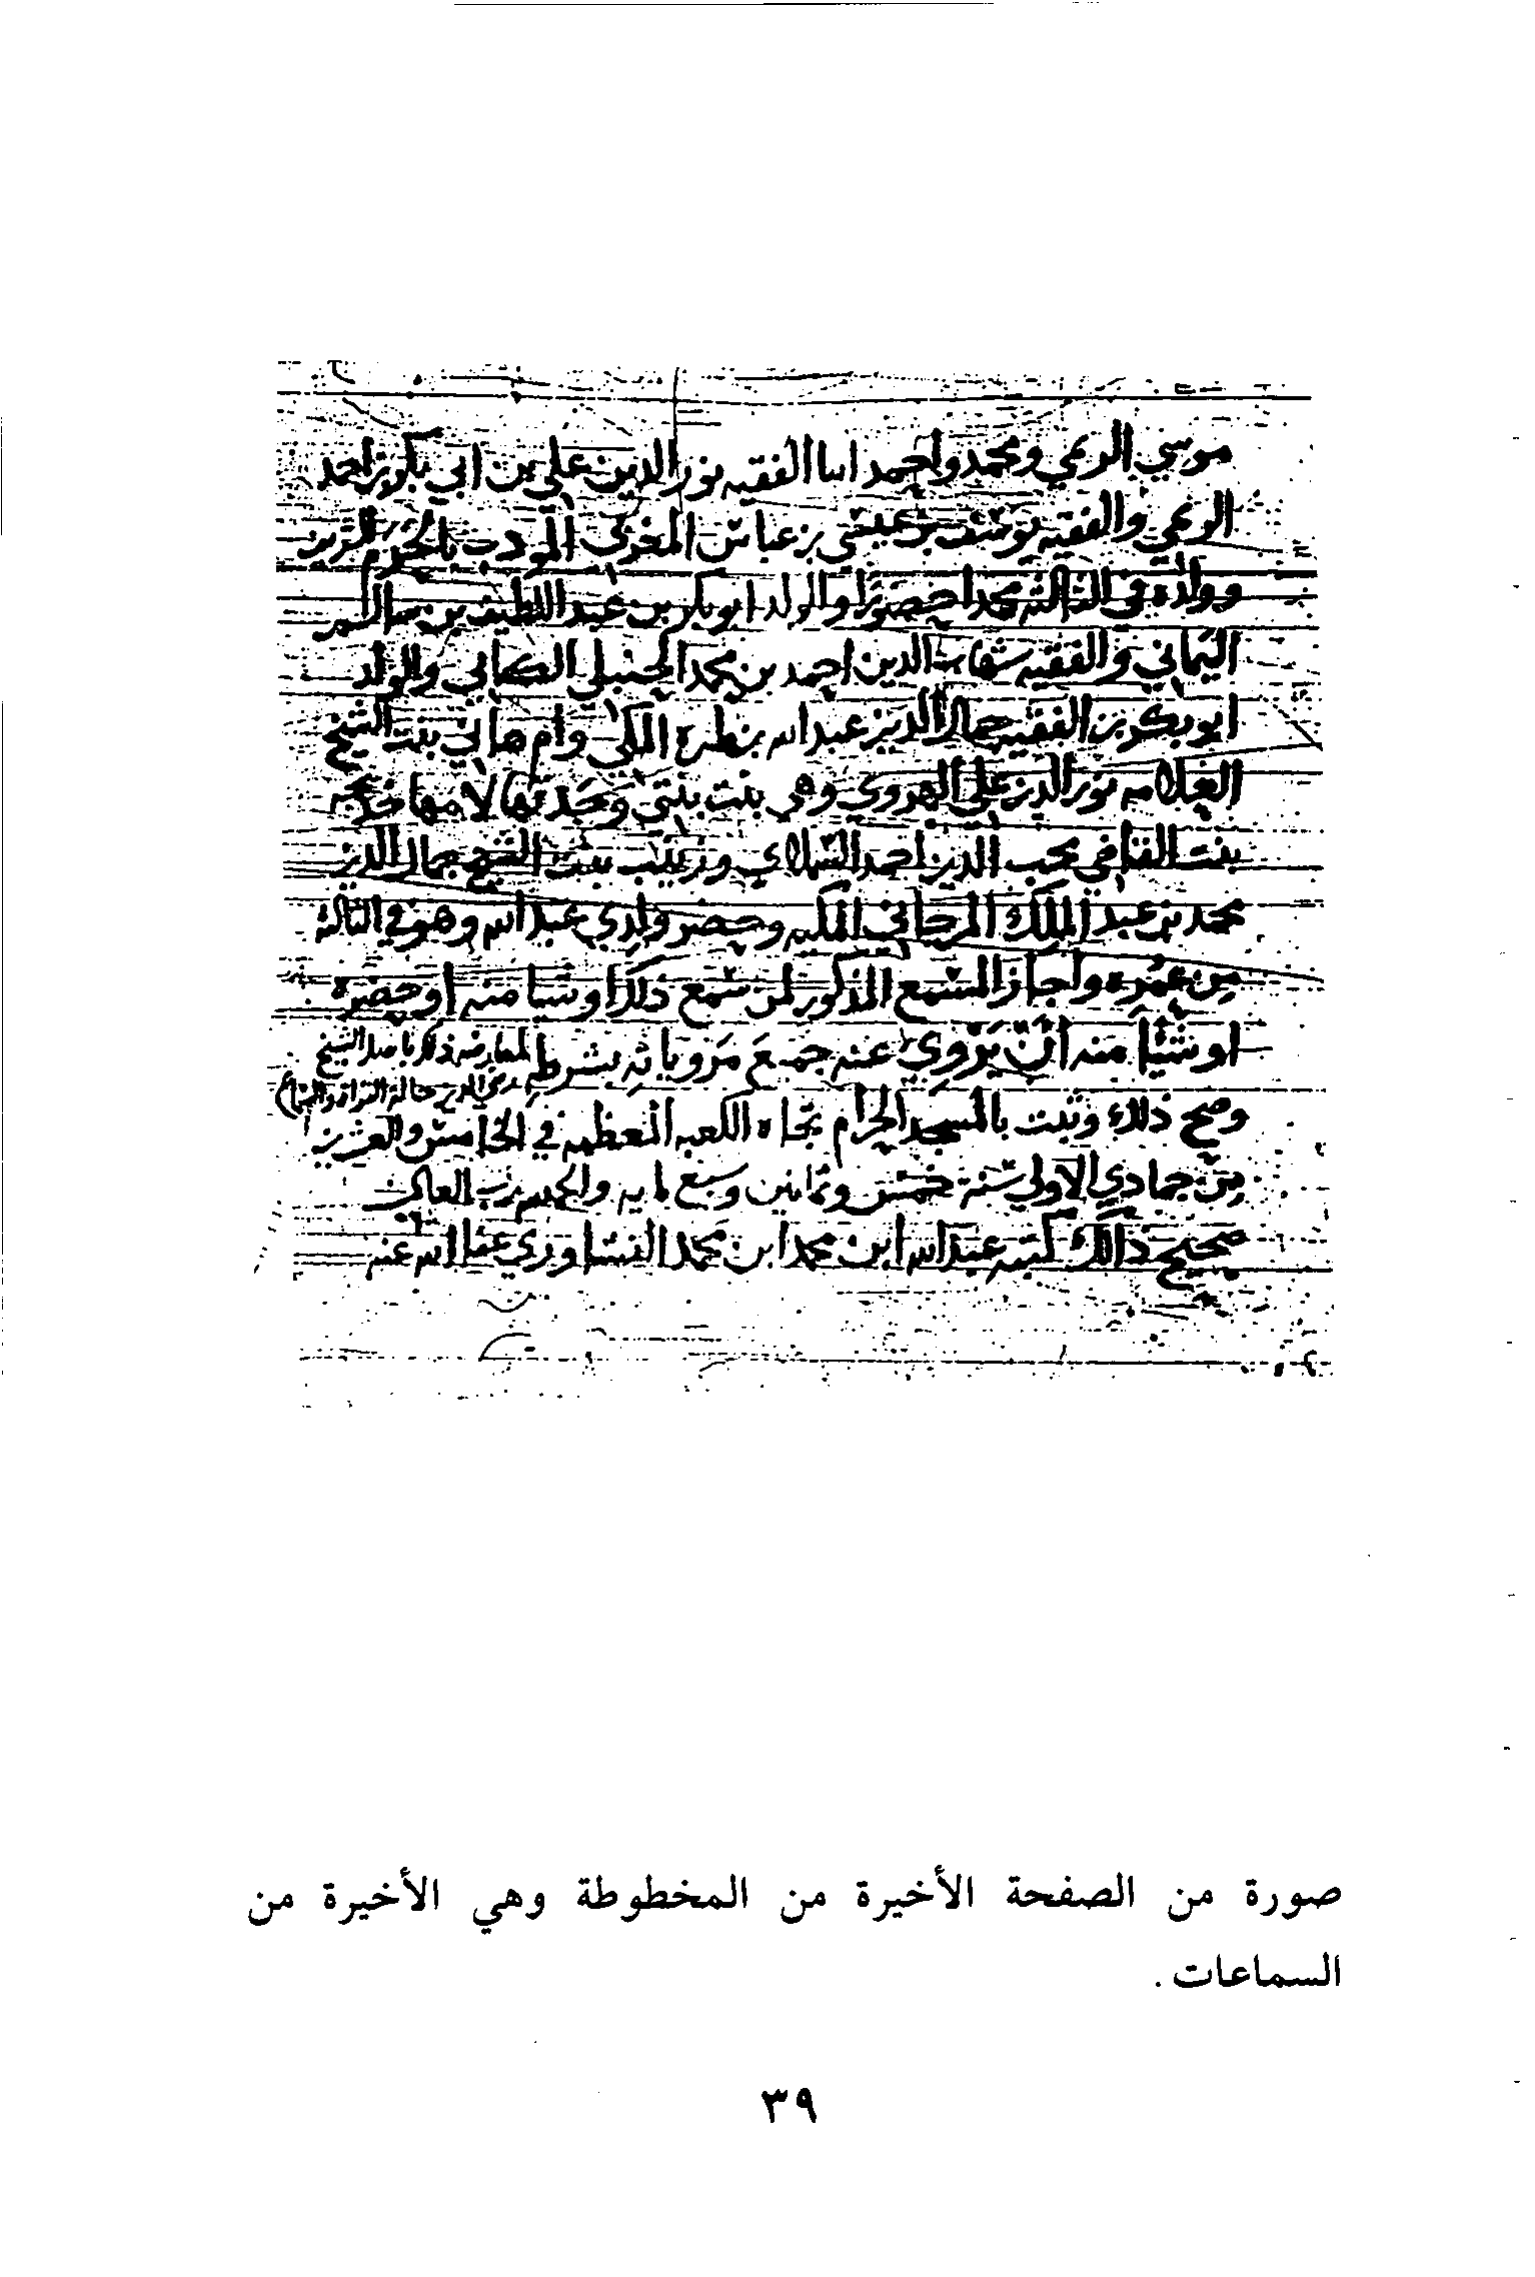 موسي الريمي ومحمد واحمد ابنا الفقيه نور الدين علي بن ابي بكر بن احمد
الريمي والفقيه يوسف بن عيسي بن عباس المغربي المودب بالحرم الشريف
وولده في الثالثة محمد حضورا والولد ابو بكر بن عبد اللطيف بن سالم
اليماني والفقيه شهاب الدين احمد بن محمد الحنبلي الكناني والولد
ابو بكر بن الفقيه جمال الدين عبد الله بن ظهيره المكي وام هاني بنت الشيخ
العلامه نور الدين علي الهروي وهي بنت بنتي وجدتها لامها خديجه
بنت القاضي محب الدين احمد وزينب بنت الشيخ جمال الدين
محمد بن عبد الملك المرجاني المكيه وحضر ولدي عبد الله وهو في الثالثه
من عمره واجاز المسمع المذكور لمن سمع ذلك او شيا منه او حضره
او شيئا منه ان يروي عنه جميع مروياته بشرطه
وصح ذلك وثبت بالمسجد الحرام تجاه الكعبه المعظمه في الخامس والعشرين
من جمادي الاولي سنه خمس وثمانين وسبع مايه والحمد لله رب العالمين
صحيح ذالك كتبه عبد الله ابن محمد ابن محمد النشاوري عفا الله عنه
صورة من الصفحة الأخيرة من المخطوطة وهي الأخيرة من
السماعات .
٣٩